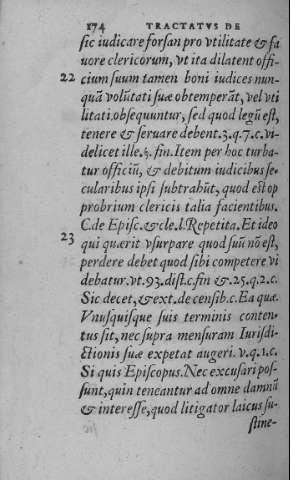 174 TRACTATVS DE
sic iudicare forsan pro vtilitate & fa
uore clericorum, vt ita dilatent offi-
22 cium suum tamen boni iudices nun-
quā volūtati suæ obtemperāt, vel vti
litati obsequuntur, sed quod legū est,
tenere & seruare debent. 3. q. 7. c. vi-
delicet ille. §. fin. Item per hoc turba-
tur officiū, & debitum iudicibus se-
cularibus ipsi subtrahūt, quod est op
probrium clericis talia facientibus.
C. de Episc. & cle. l. Repetita. Et ideo
23 qui quærit vsurpare quod suū nō est,
perdere debet quod sibi competere vi
debatur. vt. 93. dist. c. fin & 25. q. 2. c.
Sic decet, & ext. de censib. c. Ea quæ.
Vnusquisque suis terminis conten-
tus sit, nec supra mensuram Iurisdi-
ctionis suæ expetat augeri. v. q. 1. c.
Si quis Episcopus. Nec excusari pos-
sunt, quin teneantur ad omne damnū
& interesse, quod litigator laicus su-
stine-